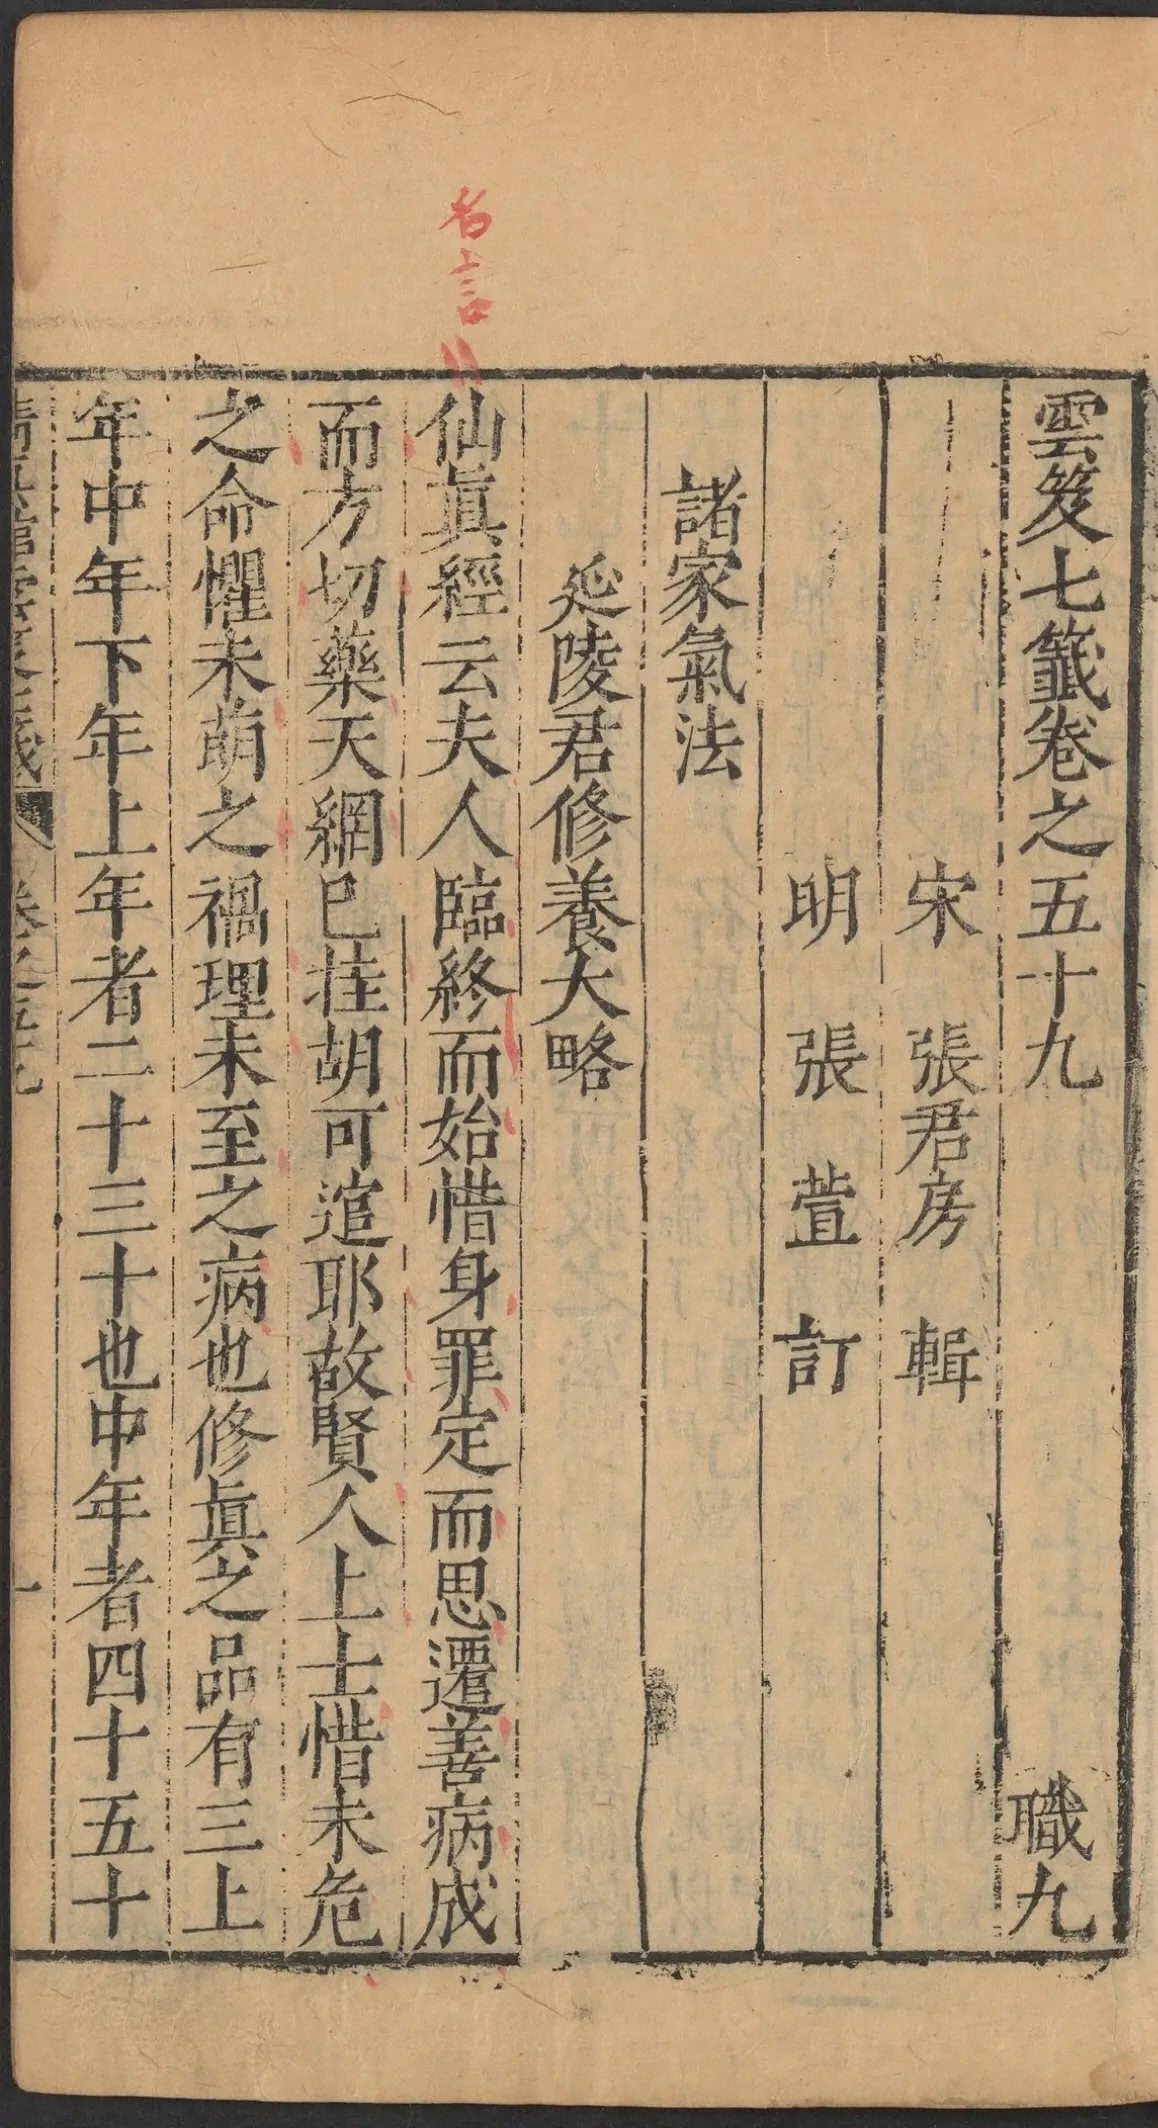 雲笈七籤卷之五十九　職九
宋　張君房　輯
明　張萱　訂
諸家氣法
延陵君修養大略
名言
仙眞經云夫人臨終而始惜身罪定而思遷善病成
而方切藥天網已挂胡可逭耶故賢人上士惜未危
之命懼未萌之禍理未至之病也修眞之品有三上
年中年下年上年者二十三十也中年者四十五十
卷之五九　一